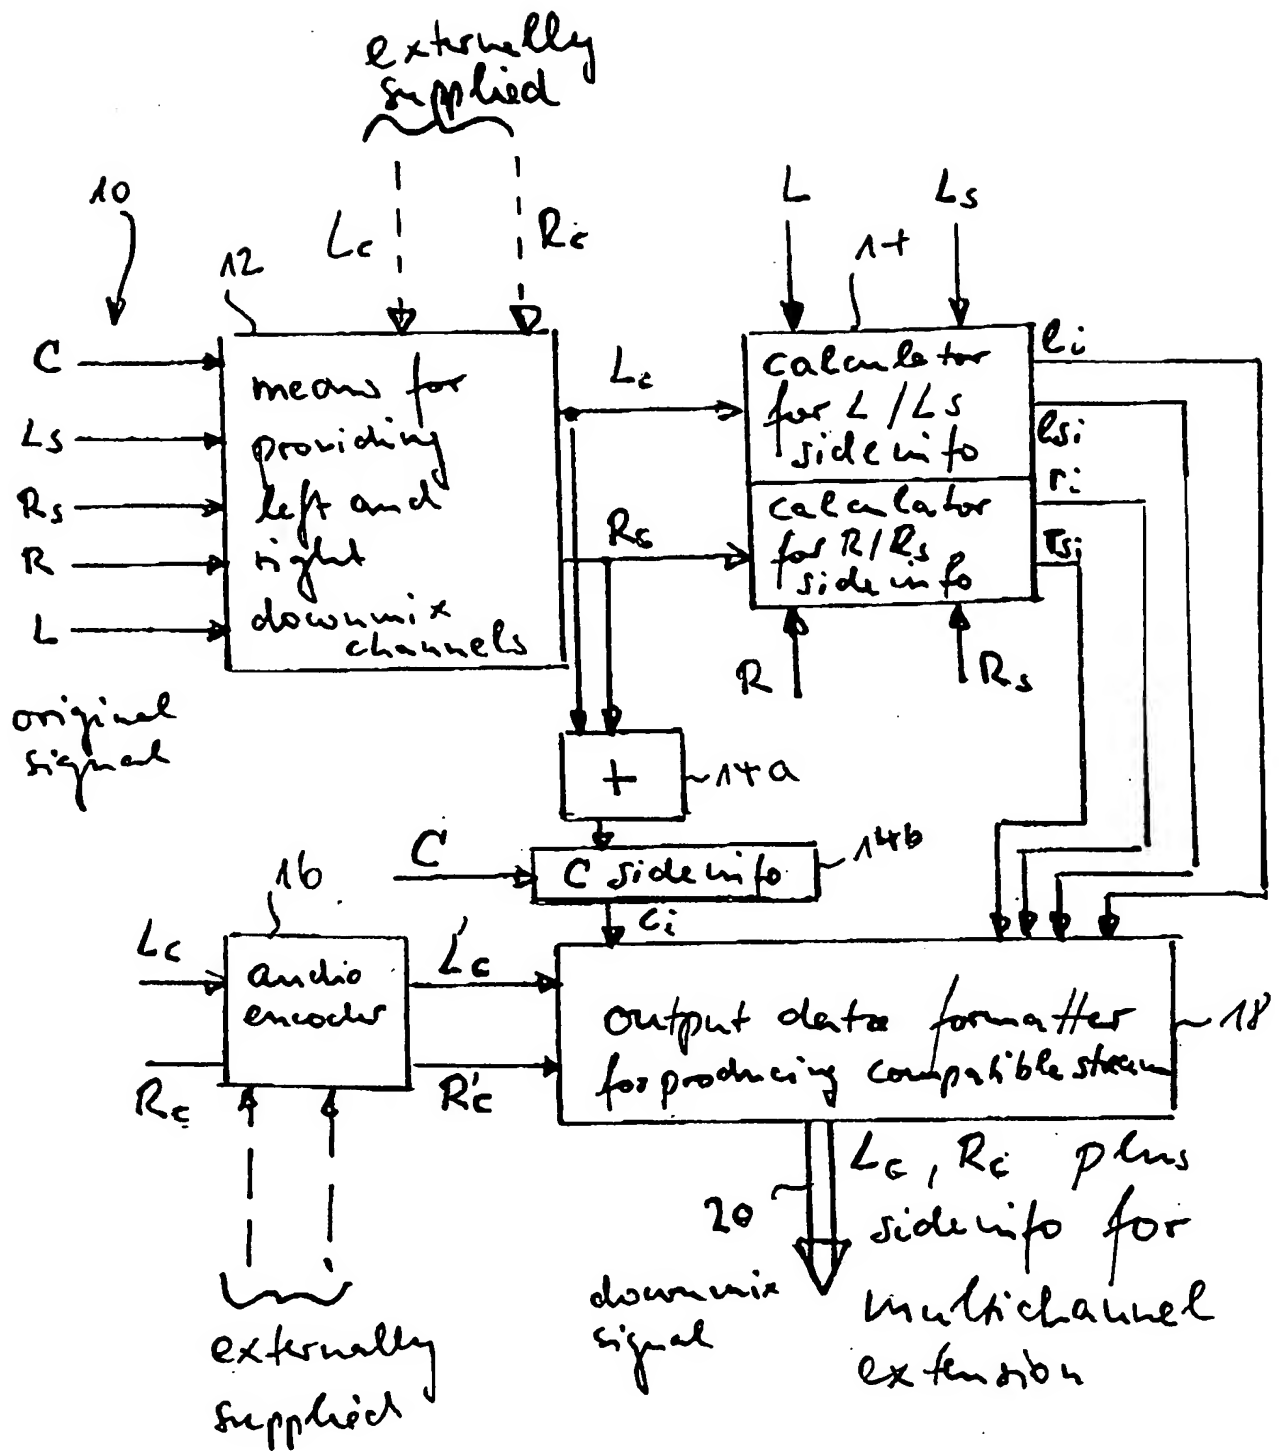 externally
supplied
10
Lc
Rc
L
Ls
12
14
C
Ls
Rs
R
L
original
signal
means for
providing
left and
right
downmix
channels
Lc
Rc
calculator
for L/Ls
sideinfo
calculator
for R/Rs
sideinfo
li
lsi
ri
rsi
R
Rs
+
14a
C
C sideinfo
14b
ci
16
Lc
Rc
audio
encoder
L'c
R'c
output data formatter
for producing compatible stream
18
externally
supplied
20
downmix
signal
Lc, Rc plus
sideinfo for
multichannel
extension